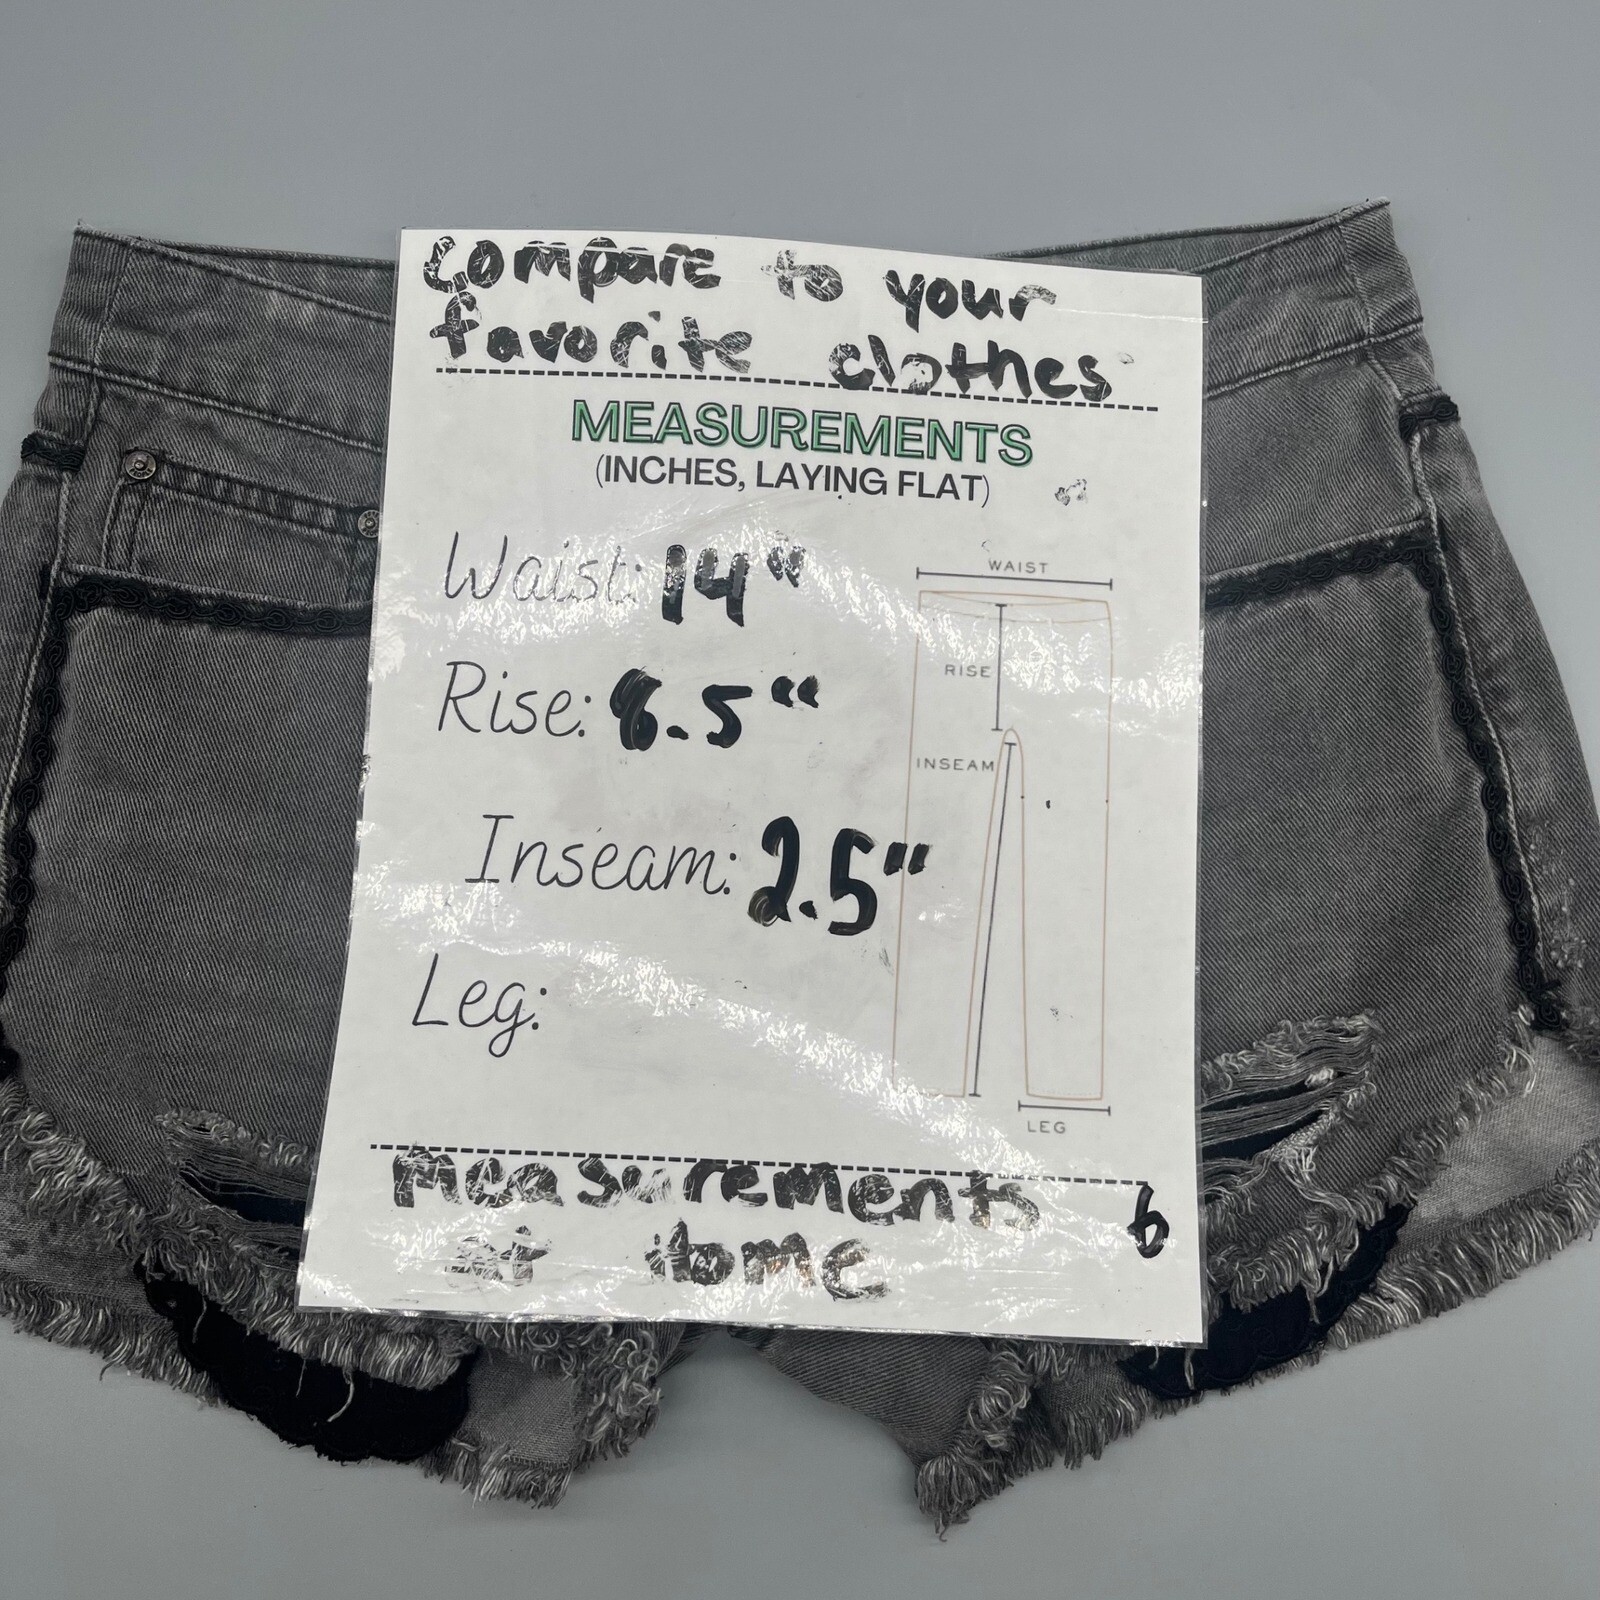 Compare to your
favorite clothes
MEASUREMENTS
(INCHES, LAYING FLAT)
Waist: 14"
Rise: 8.5"
Inseam: 2.5"
Leg:
WAIST
RISE
INSEAM
LEG
Measurements
at Home
6